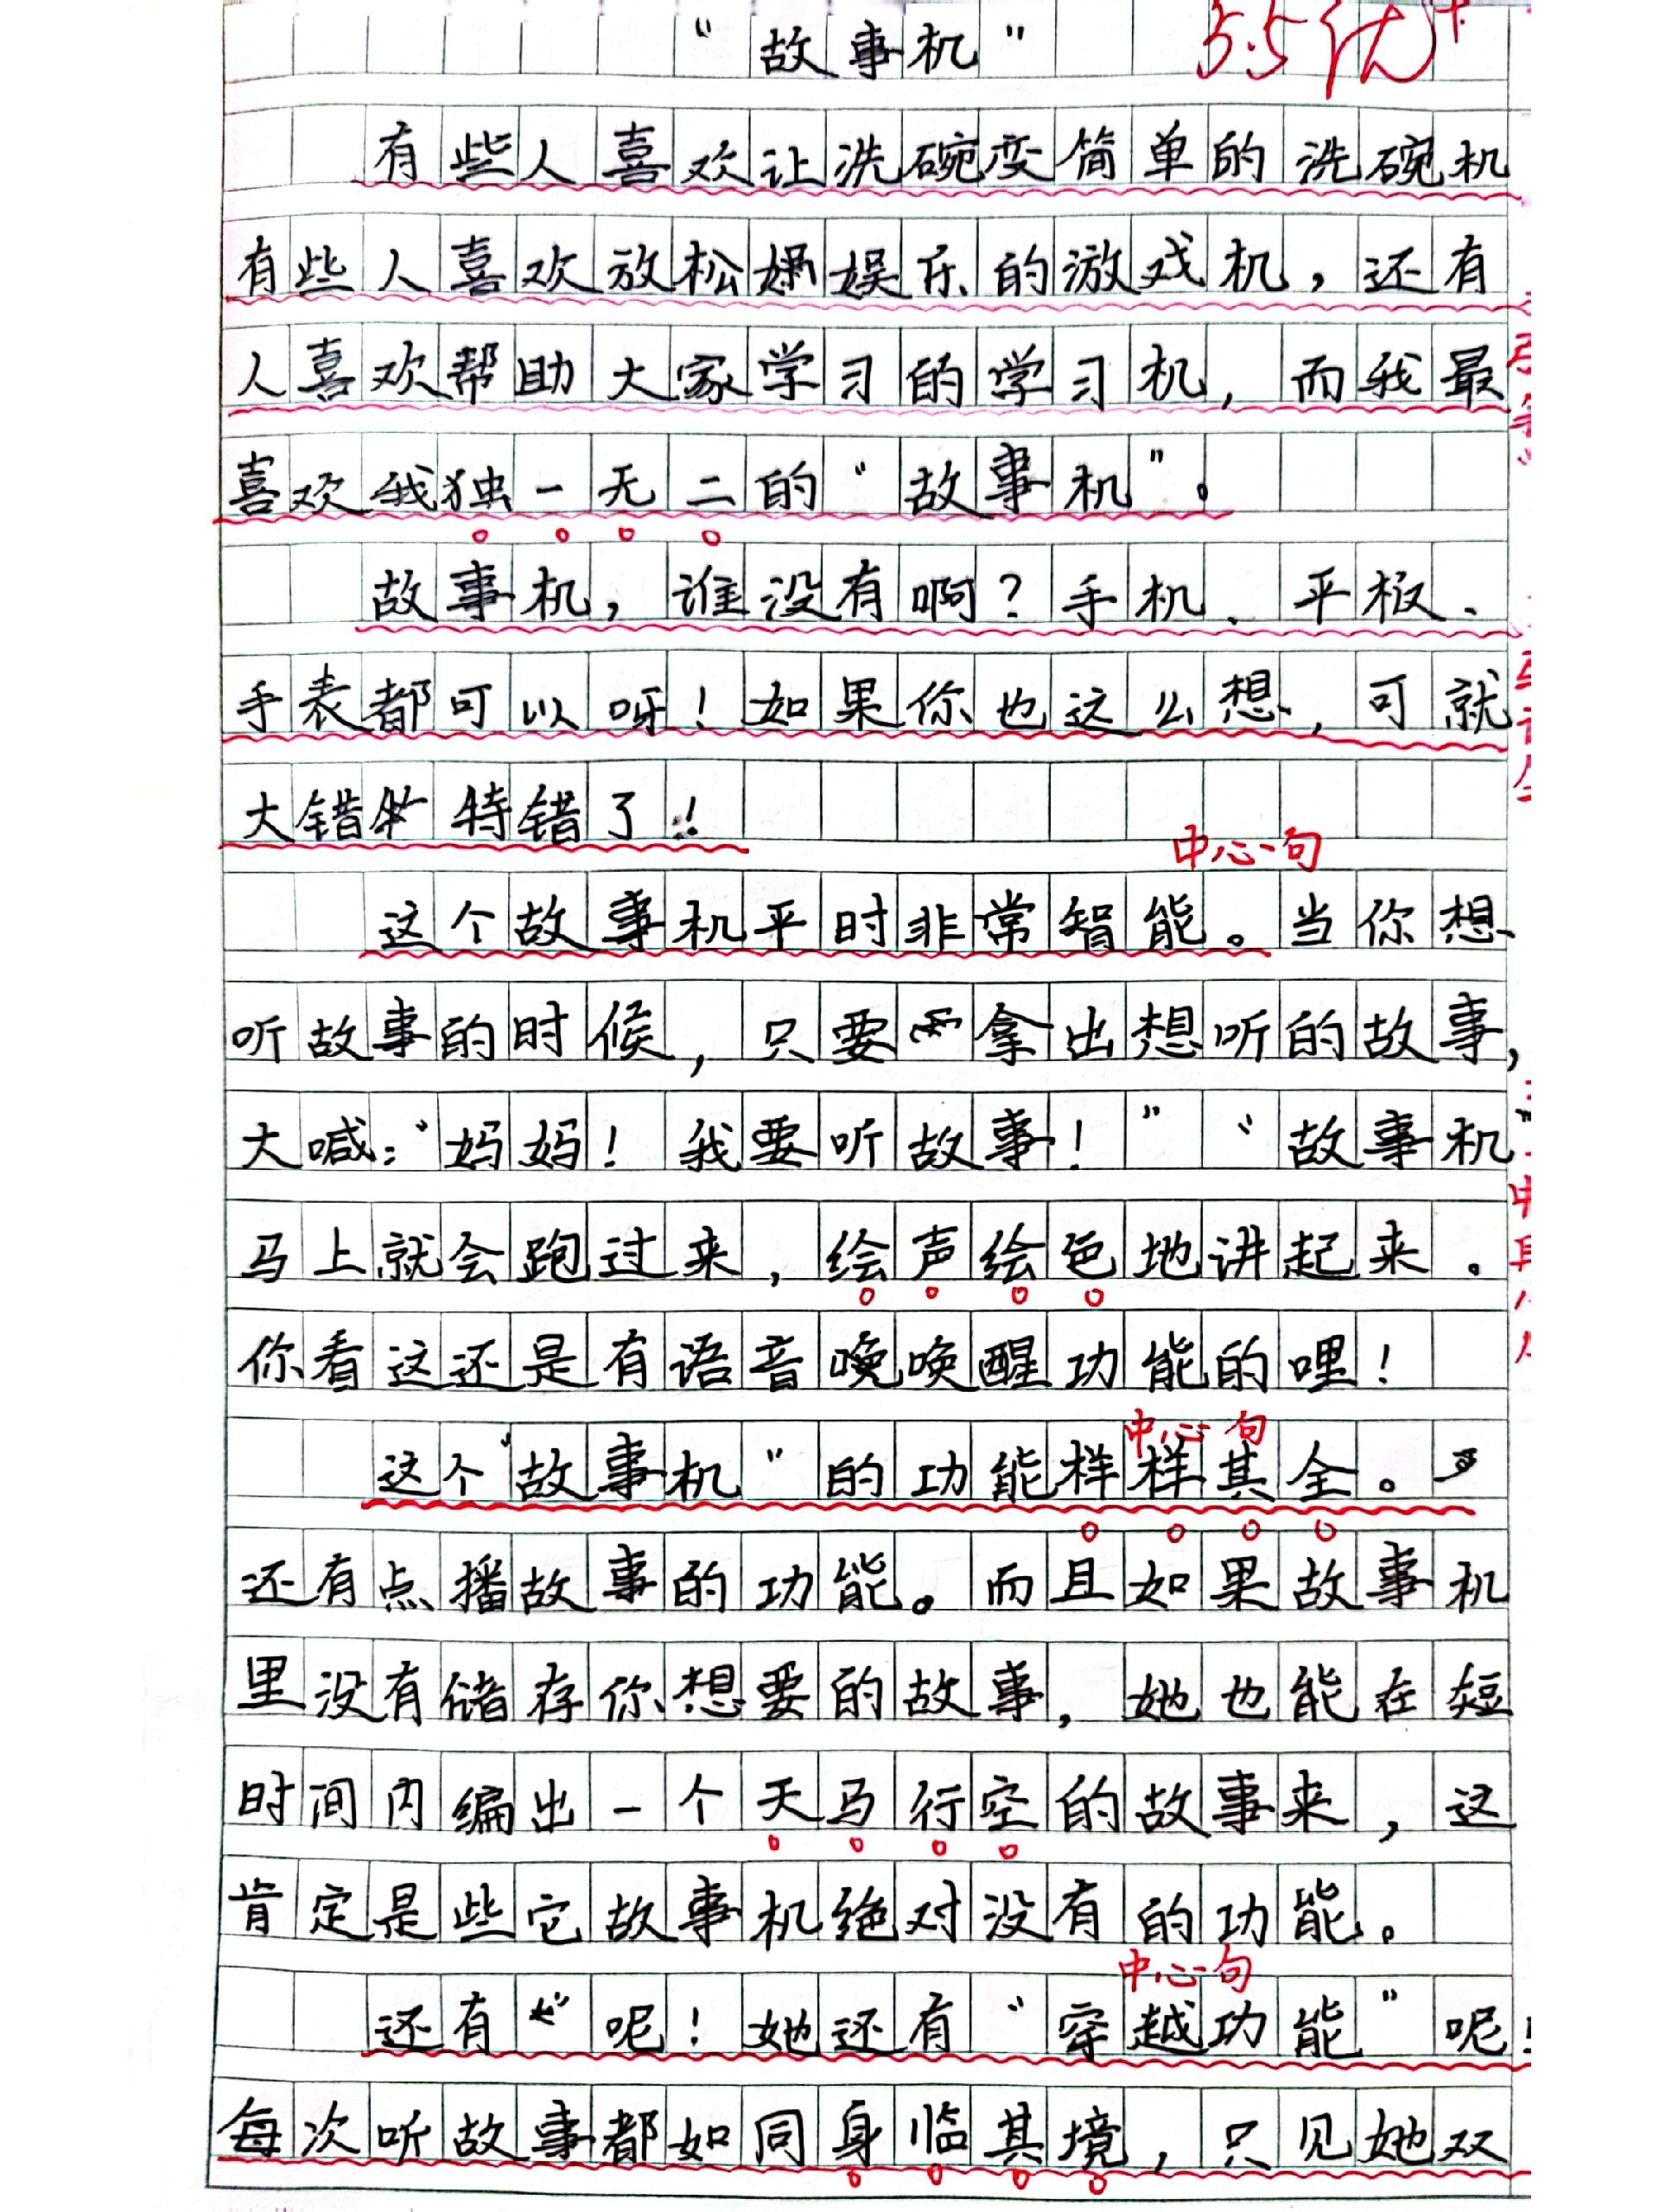 “故事机” 5.5 优+
有些人喜欢让洗碗变简单的洗碗机
有些人喜欢放松娱乐的游戏机，还有
人喜欢帮助大家学习的学习机，而我最
喜欢我独一无二的“故事机”。
故事机，谁没有啊？手机、平板、
手表都可以呀！如果你也这么想，可就
大错特错了！
中心句
这个故事机平时非常智能。当你想
听故事的时候，只要拿出想听的故事，
大喊：“妈妈！我要听故事！”“故事机”
马上就会跑过来，绘声绘色地讲起来。
你看这还是有语音唤醒功能的哩！
中心句
这个“故事机”的功能样样其全。
还有点播故事的功能。而且如果故事机
里没有储存你想要的故事，她也能在短
时间内编出一个天马行空的故事来，这
肯定是些它故事机绝对没有的功能。
中心句
还有呢！她还有“穿越功能”呢
每次听故事都如同身临其境，只见她双